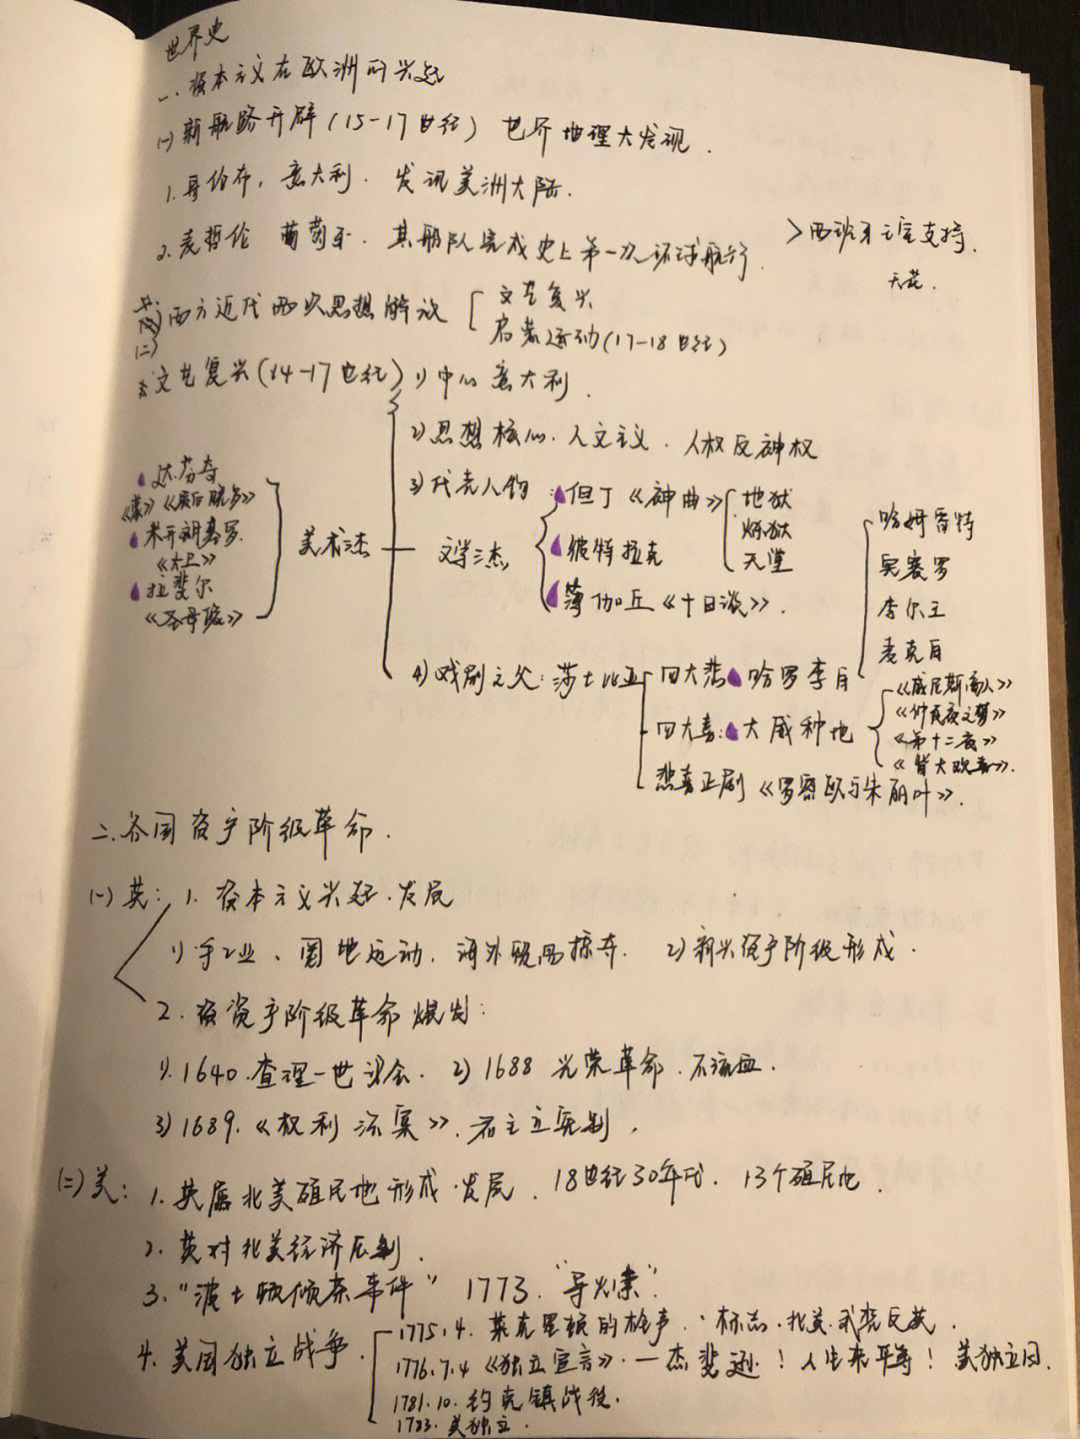 世界史
一、资本主义在欧洲的兴起
(一) 新航路开辟(15-17世纪) 世界地理大发现.
1.哥伦布,意大利.发现美洲大陆.
2.麦哲伦 葡萄牙.其船队完成史上第一次环球航行.
>西班牙王室支持.
天花.
(二) 西方近代两次思想解放 [文艺复兴
启蒙运动(17-18世纪)
文艺复兴(14-17世纪) 1)中心意大利.
2)思想核心.人文主义.人权反神权
3)代表人物
文学三杰
但丁《神曲》[地狱
炼狱
天堂
彼特拉克
薄伽丘《十日谈》.
美术三杰
达芬奇
《最后晚餐》
米开朗基罗
《大卫》
拉斐尔
《圣母像》
4)戏剧之父:莎士比亚
四大悲 哈罗李白
哈姆雷特
奥赛罗
李尔王
麦克白
四大喜: 大威种地
《威尼斯商人》
《仲夏夜之梦》
《第十二夜》
《皆大欢喜》.
悲喜正剧《罗密欧与朱丽叶》.
二、各国资产阶级革命.
(一)英: 1.资本主义兴起.发展
1)手工业、圈地运动.海外贸易掠夺. 2)新兴资产阶级形成.
2.资产阶级革命爆发:
1).1640.查理一世议会. 2)1688 光荣革命.不流血.
3)1689.《权利法案》.君主立宪制.
(二)美: 1.英属北美殖民地形成.发展. 18世纪30年代. 13个殖民地.
2.英对北美经济压制.
3."波士顿倾茶事件" 1773."导火索".
4.美国独立战争.
1775.4.莱克星顿的枪声.标志.北美武装反英.
1776.7.4《独立宣言》.—杰斐逊!人生来平等!美独立日.
1781.10.约克镇战役.
1783.美独立.